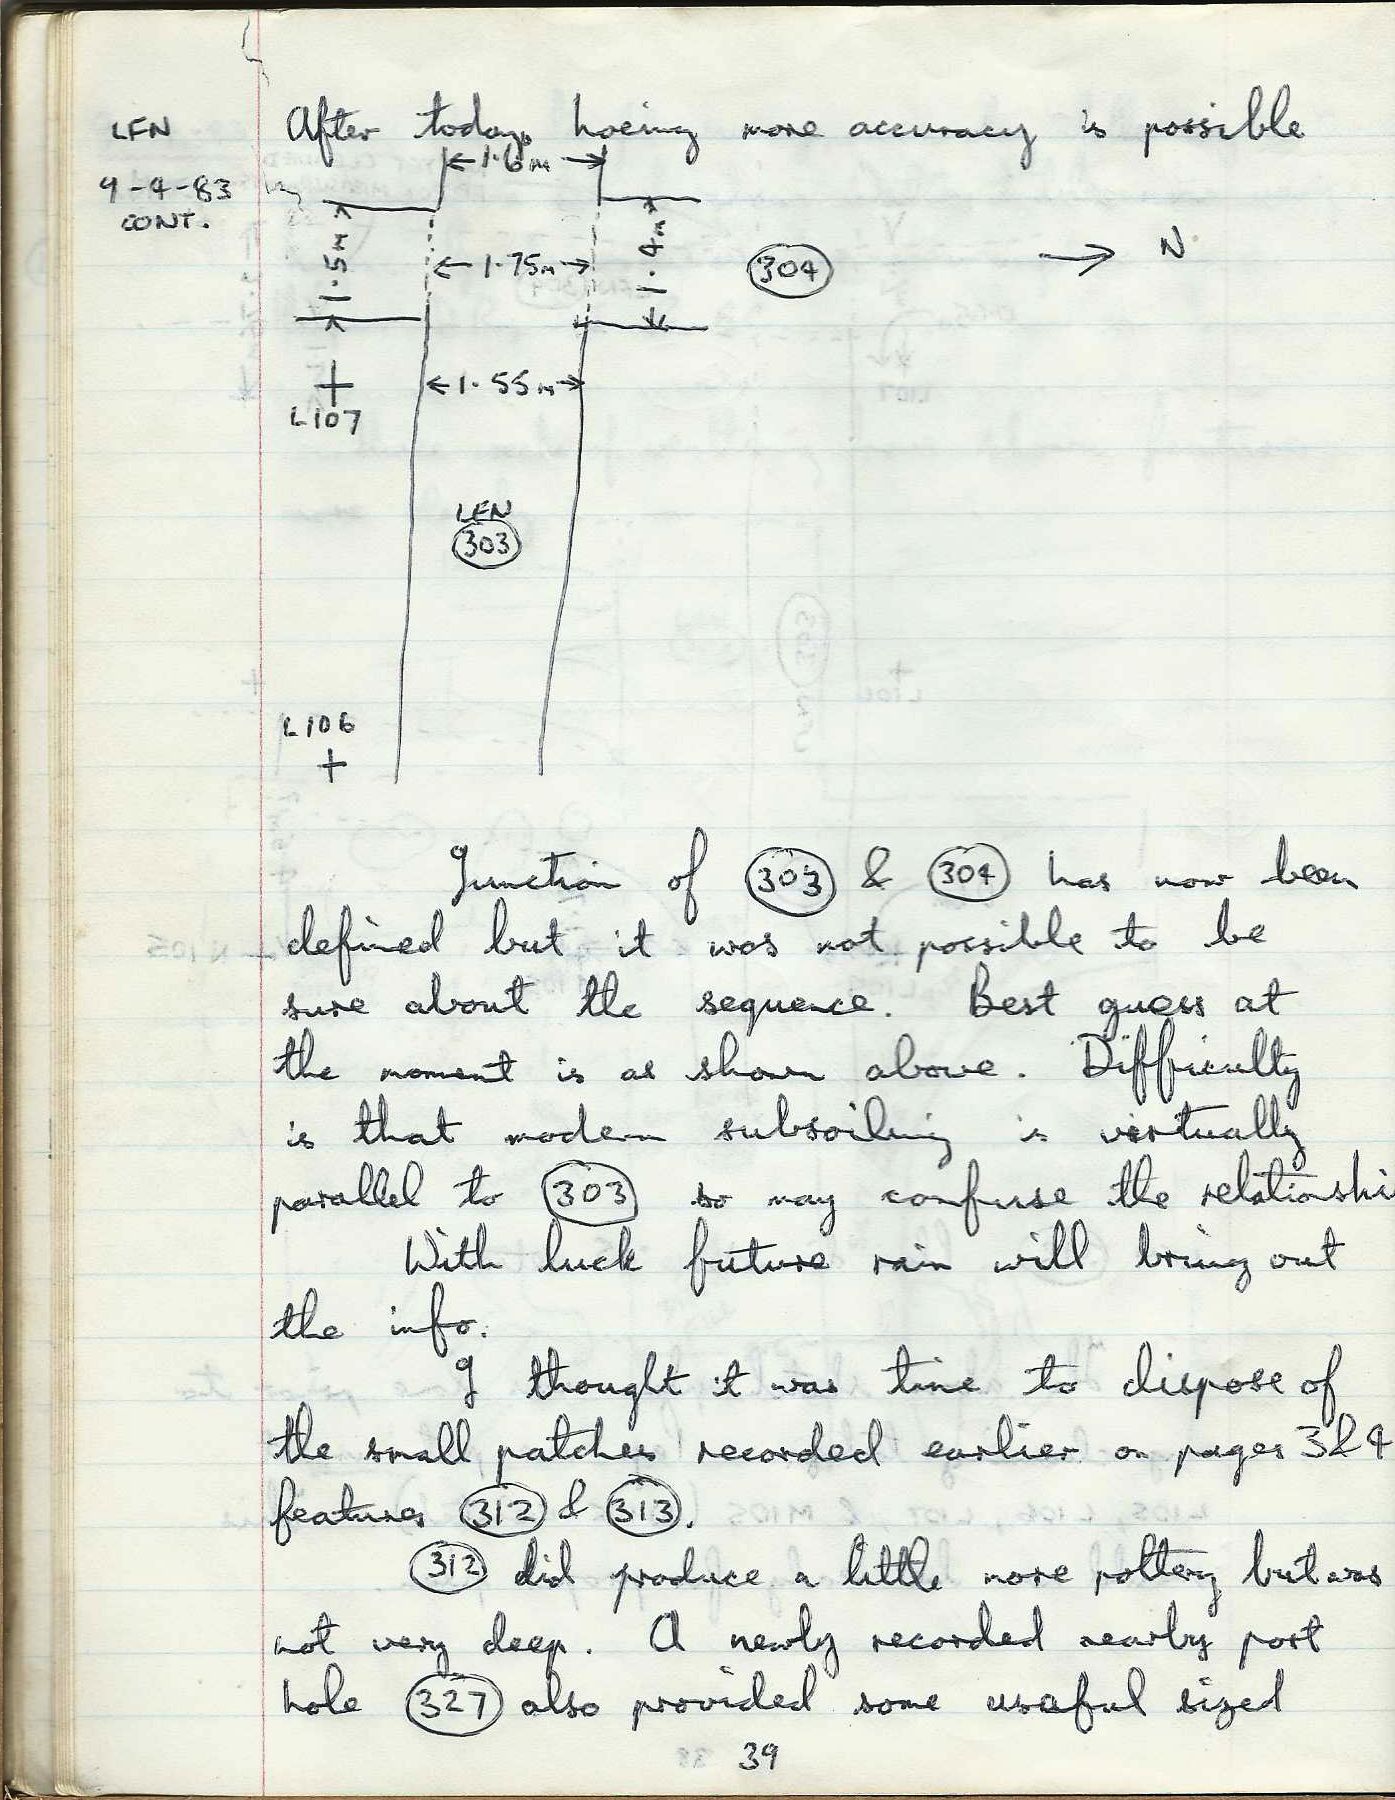 LFN
9-4-83
CONT.
After todays hoeing more accuracy is possible
1.6m
1.5m
1.75m
1.4m
304
N
1.55m
L107
LFN
303
L106
Junction of 303 & 304 has now been
defined but it was not possible to be
sure about the sequence. Best guess at
the moment is as shown above. Difficulty
is that modern subsoiling is virtually
parallel to 303 so may confuse the relationshi
With luck future rain will bring out
the info.
I thought it was time to dispose of
the small patches recorded earlier on pages 3&4
features 312 & 313.
312 did produce a little more pottery but was
not very deep. A newly recorded nearby post
hole 327 also provided some useful sized
39